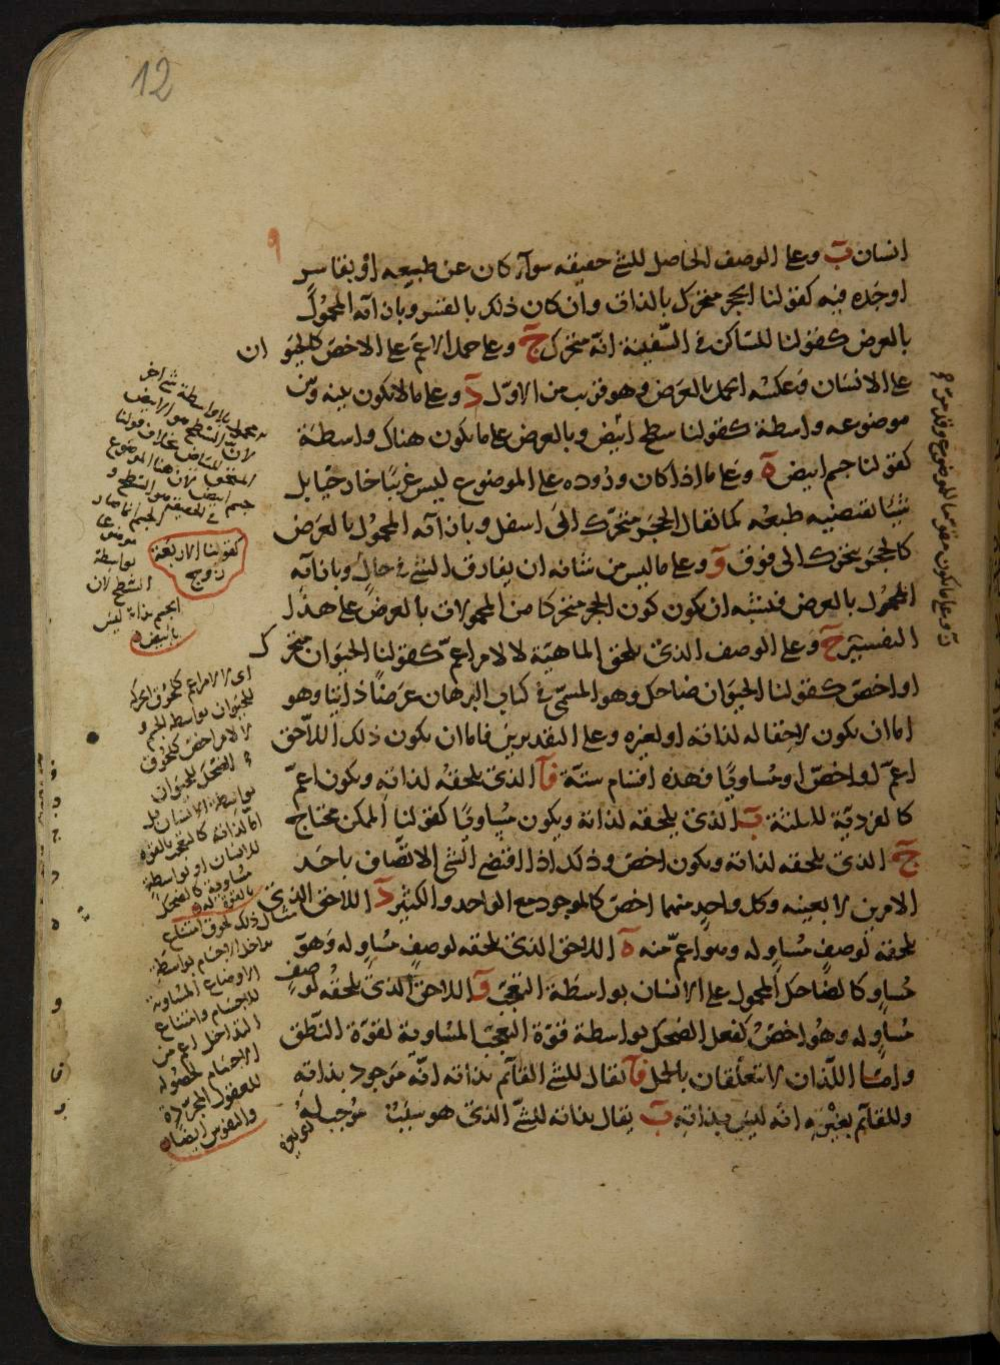 12
٩
انسان ب وعلى الوصف الحاصل للشئ حقيقه سوآء كان عن طبيعه او بقاسر
اوجده فيه كقولنا الحجر متحرك بالذات وان كان ذلك بالقسر وبازآئه المحمول
بالعرض كقولنا للساكن فى السفينة انه متحرك ج وعلى حمل الاعم على الاخص كالحيوان
على الانسان وعكسه الحمل بالعرض وهو قريب من الاول د وعلى مالا يكون بينه وبين
موضوعه واسطة كقولنا سطح ابيض وبالعرض على ما يكون هناك واسطة
كقولنا جسم ابيض ه وعلى ما اذا كان وروده على الموضوع ليس غريبًا خارجيًا بل
شيئا تقتضيه طبعه كما تقال الحجر متحرك الى اسفل وبازآئه المحمول بالعرض
كالحجر يتحرك الى فوق و وعلى ما ليس من شانه ان يفارق الشئ فى حال وبازآئه
المحمول بالعرض فيشبه ان يكون كون الحجر متحركا من المحمولات بالعرض على هذا
التفسير ح وعلى الوصف الذى يلحق الماهية لا لامر اعم كقولنا الحيوان متحرك
او اخص كقولنا الحيوان ضاحك وهو المسمى فى كتاب البرهان عرضًا ذاتيا وهو
اما ان يكون لاحقا له لذاته او لغيره وعلى التقديرين فاما ان يكون ذلك اللاحق
اعم او اخص او مساويًا فهذه اقسام ستة فآ الذى يلحقه لذاته ويكون اعم
كالفردية للثلثة ب الذى يلحقه لذاته ويكون مساويًا كقولنا الممكن محتاج
ج الذى يلحقه لذاته ويكون اخص وذلك اذا اقتضى الشئ الاتصاف باحد
الامرين لا بعينه وكل واحد منهما اخص كالموجود مع الواحد والكثير د اللاحق الذى
يلحقه لوصف مساو له وهو اعم منه ه اللاحق الذى يلحقه لوصف مساو له وهو
مساو كالضاحك المحمول على الانسان بواسطة التعجب و اللاحق الذى يلحقه لوصف
مساو له وهو اخص كفعل الضحك بواسطة قوة التعجب المساوية لقوة النطق
واما اللذان لا يتعلقان بالحمل فآ تقال للشئ القآئم بذاته انه موجود بذاته
وللقآئم بغيره انه ليس بذاته ب يقال بذاته للشئ الذى هو سبب موجب له
كقولنا الاربعة
زوج
بواسطة
السطح لان
الجسم بذاته ليس
بابيض
اى لا لامر اعم
للحيوان بواسطة الجسم و
لا لامر اخص كلحوق
الضحك للحيوان
بواسطة الانسان بل
اما لذاته
للانسان او بواسطة
الاوضاع المساوية
للاجسام وامتناع
التداخل اعم من
الاجسام لحصوله
للعقول المجردة
والنفوس ايضا